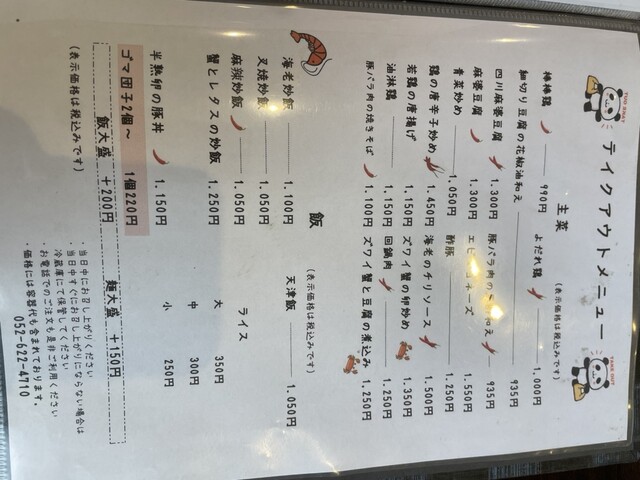 TAKE OUT
テイクアウトメニュー
TAKE OUT
主菜
(表示価格は税込みです)
棒棒鶏 990円 よだれ鶏 1.000円
細切り豆腐の花椒油和え 935円
四川麻婆豆腐 1.300円 豚バラ肉の 和え 935円
麻婆豆腐 1.300円 エビ ネーズ 1.550円
青菜炒め 1.050円 酢豚 1.250円
鶏の唐辛子炒め 1.450円 海老のチリソース 1.500円
若鶏の唐揚げ 1.150円 ズワイ蟹の卵炒め 1.350円
油淋鶏 1.150円 回鍋肉 1.250円
豚バラ肉の焼きそば 1.100円 ズワイ蟹と豆腐の煮込み 1.250円
飯
(表示価格は税込みです)
海老炒飯 1.100円 天津飯 1.050円
叉焼炒飯 1.050円
麻辣炒飯 1.050円 ライス
蟹とレタスの炒飯 1.250円 大 350円
中 300円
半熟卵の豚丼 1.150円 小 250円
ゴマ団子2個~ 1個220円
飯大盛 +200円 麺大盛 +150円
(表示価格は税込みです)
・当日中にお召し上がりください
当日中すぐにお召し上がりにならない場合は
冷蔵庫にて保管してください
・お電話でのご注文も是非ご利用ください
・価格には容器代も含まれております。
052-622-4710